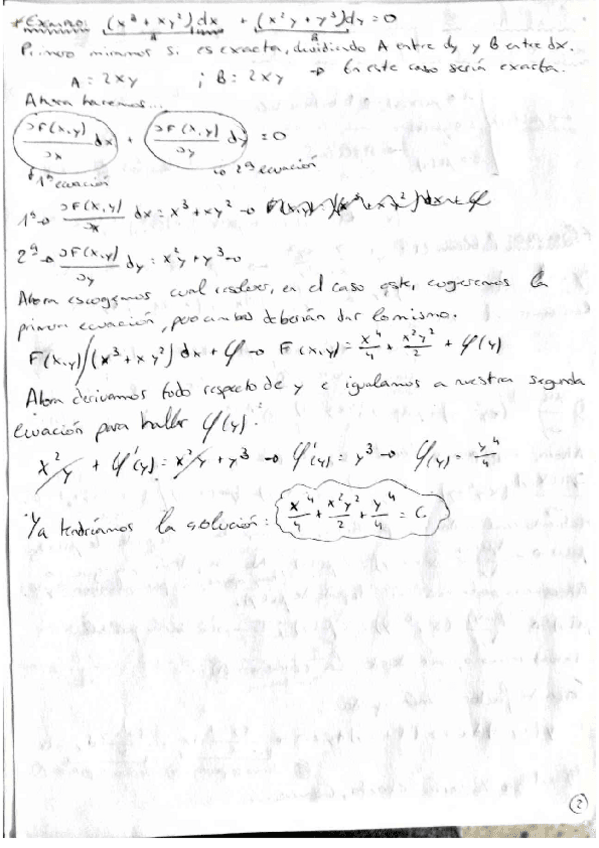 * Exemplo: (x³ + xy²) dx + (x²y + y³) dy = 0
A B
Primero miramos si es exacta, dividiendo A entre dy y B entre dx.
A = 2xy ; B = 2xy → En este caso sería exacta.
Ahora haremos...
∂F(x,y)/∂x dx + ∂F(x,y)/∂y dy = 0
1ª ecuación → 2ª ecuación
1ª → ∂F(x,y)/∂x dx = x³ + xy² →
2ª → ∂F(x,y)/∂y dy = x²y + y³ →
Ahora escogemos cual resolver, en el caso este, cogeremos la
primera ecuación, pero ambas deberían dar lo mismo.
F(x,y) ∫(x³ + xy²) dx + φ → F(x,y) = x⁴/4 + x²y²/2 + φ(y)
Ahora derivamos todo respecto de y e igualamos a nuestra segunda
ecuación para hallar φ(y):
x²y + φ'(y) = x²y + y³ → φ'(y) = y³ → φ(y) = y⁴/4
Ya tendríamos la solución: x⁴/4 + x²y²/2 + y⁴/4 = C.
2